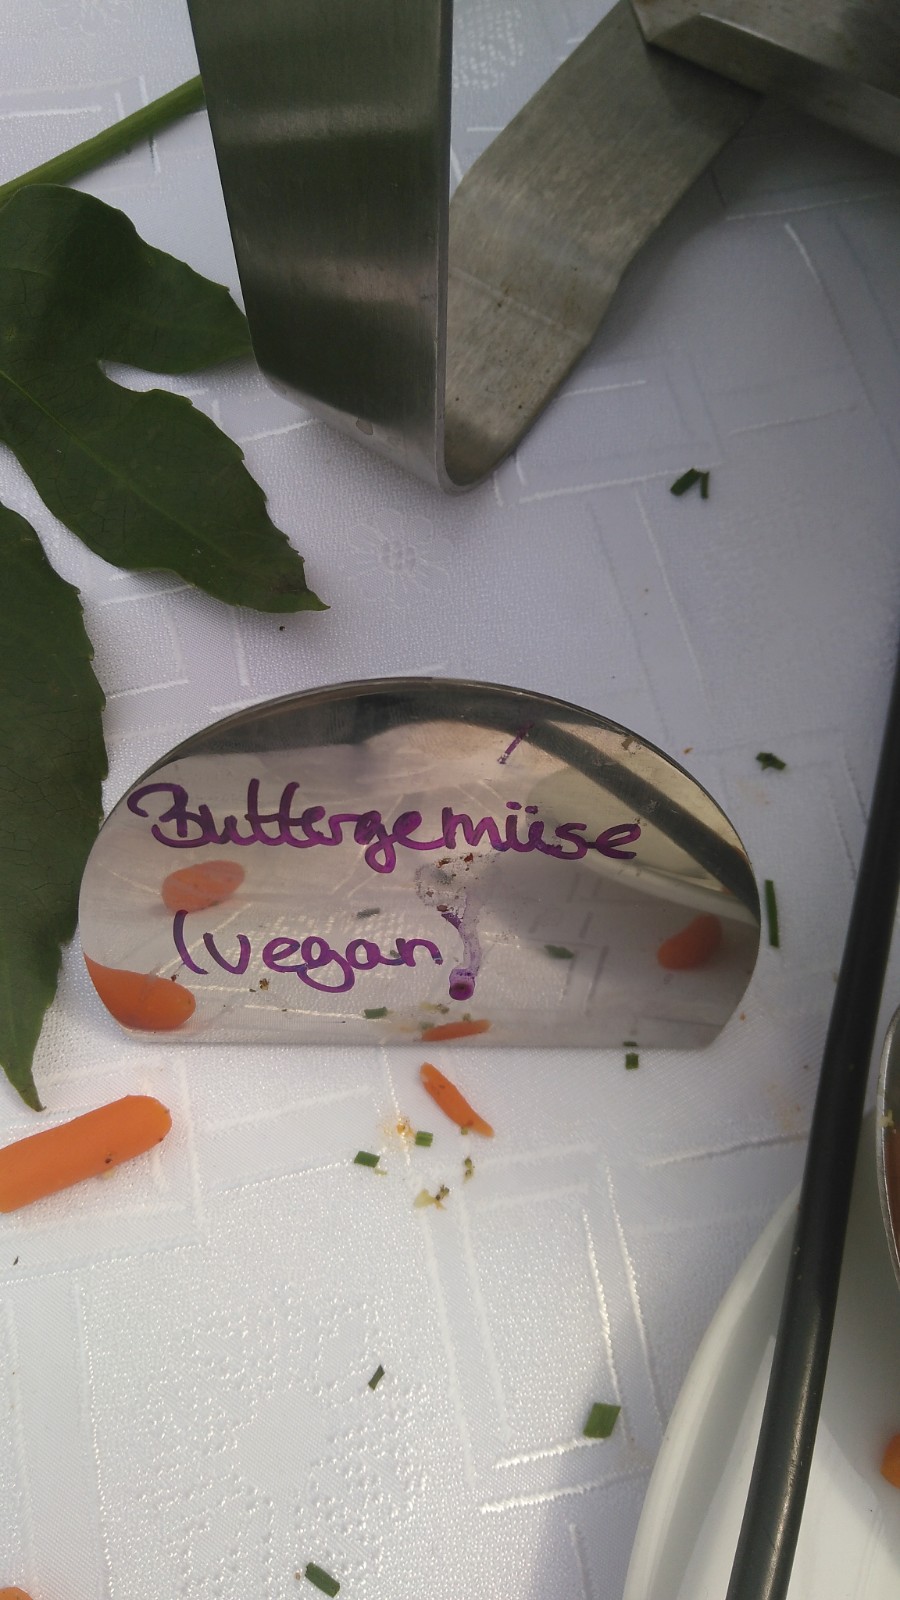 Buttergemüse
(vegan)